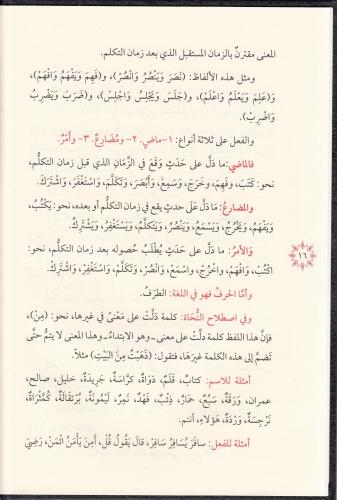 المعنى مقترنٌ بالزمان المستقبل الذي بعد زمان التكلم.
ومثل هذه الألفاظ: (نَصَرَ وَيَنْصُرُ وَانْصُرْ)، و(فَهِمَ وَيَفْهَمُ وَافْهَمْ)،
و(عَلِمَ وَيَعْلَمُ وَاعْلَمْ)، و(جَلَسَ وَيَجْلِسُ وَاجْلِسْ)، و(ضَرَبَ وَيَضْرِبُ
وَاضْرِبْ).
والفعل على ثلاثة أنواع: ١-ماضٍ. ٢- ومُضَارِعٌ. ٣- وأَمْرٌ.
فالماضي: ما دَلَّ على حَدَثٍ وَقَعَ في الزَّمَانِ الذي قبل زمان التكلُّم،
نحو: كَتَبَ، وفَهِمَ، وخَرَجَ، وَسَمِعَ، وَأَبْصَرَ، وَتَكَلَّمَ، وَاسْتَغْفَرَ، وَاشْتَرَكَ.
والمضارعُ: مَا دَلَّ على حدثٍ يقع في زَمَانِ التكلُّم أو بعده، نحو: يَكْتُبُ،
وَيَفْهَمُ، وَيَخْرُجُ، وَيَسْمَعُ، وَيَنْصُرُ، وَيَتكَلَّمُ، وَيَسْتَغْفِرُ، وَيَشْتَرِكُ.
وَالأمرُ: ما دَلَّ على حَدَثٍ يُطْلَبُ حُصوله بعد زمان التكلُّم، نحو:
اكْتُبْ، وَافْهَمْ، واخْرُجْ، واسْمَعْ، وَانْصُرْ، وَتَكَلَّمْ، وَاسْتَغْفِرْ، وَاشْتَرِكْ.
وأمَّا الحَرفُ فهو في اللغة: الطرَفُ.
وفي اصطلاح النُّحَاة: كلمة دَلَّتْ على مَعْنًى في غيرها، نحو: (مِنْ)،
فإنَّ هذا اللفظ كلمة دلَّتْ على معنى -وهو الابتداءُ- وهذا المعنى لا يتمُّ حتَّى
تَضمَّ إلى هذه الكلمة غيرَهَا، فتقول: (ذَهَبْتُ مِنَ البَيْتِ) مثلاً.
أمثلة للاسم: كتابٌ، قَلَمٌ، دَوَاةٌ، كرَّاسَةٌ، جَرِيدَةٌ، خليل، صالح،
عمران، وَرَقَةٌ، سَبُعٌ، حمَارٌ، ذِئْبٌ، فَهْدٌ، نَمِرٌ، لَيْمُونَةٌ، بُرْتقَالَةٌ، كُمَّثْرَاةٌ،
نَرْجِسَةٌ، وَرْدَةٌ، هَؤلاءِ، أنتم.
أمثلة للفعل: سافَرَ يُسَافِرُ سَافِرْ، قالَ يَقُولُ قُلْ، أَمِنَ يَأْمَنُ ائْمَنْ، رَضِيَ
١٦